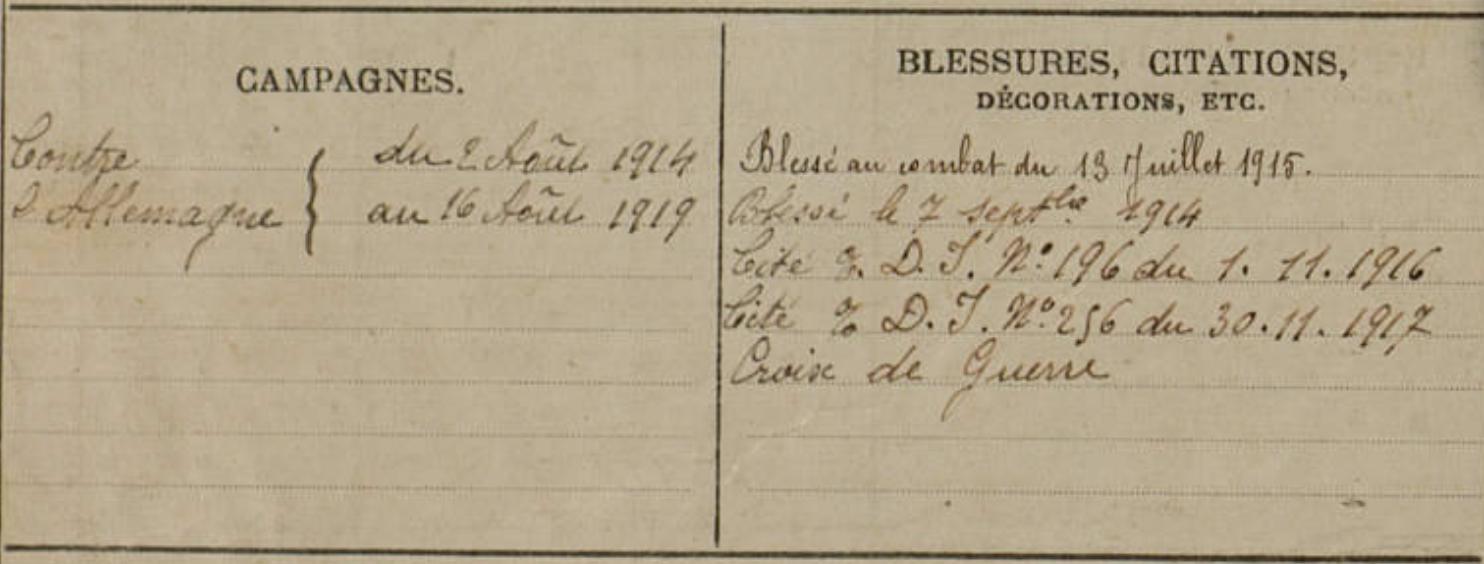 CAMPAGNES.
Contre
l'Allemagne
du 2 Août 1914
au 16 Août 1919
BLESSURES, CITATIONS,
DÉCORATIONS, ETC.
Blessé au combat du 13 Juillet 1915.
Blessé le 7 septbre 1914
Cité D. I. No 196 du 1. 11. 1916
Cité D. I. No 256 du 30. 11. 1917
Croix de Guerre